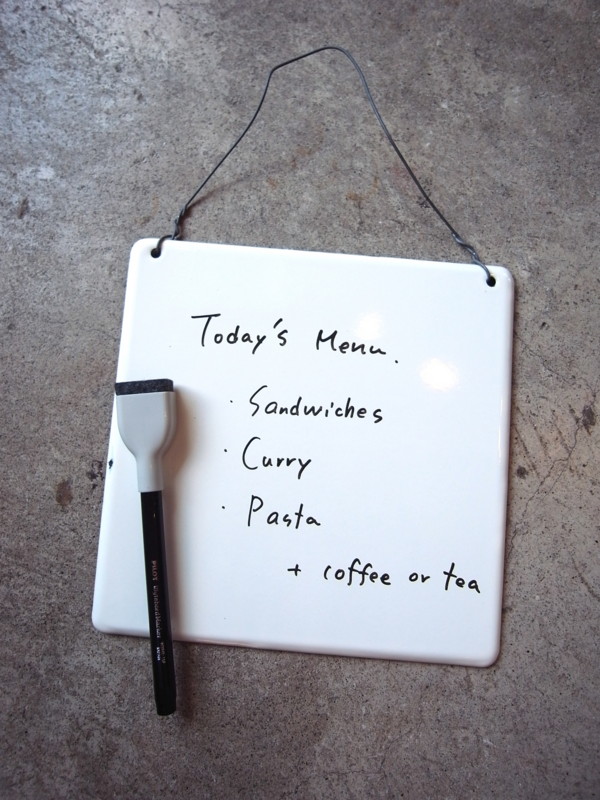 Today's Menu.
· Sandwiches
· Curry
· Pasta
+ coffee or tea